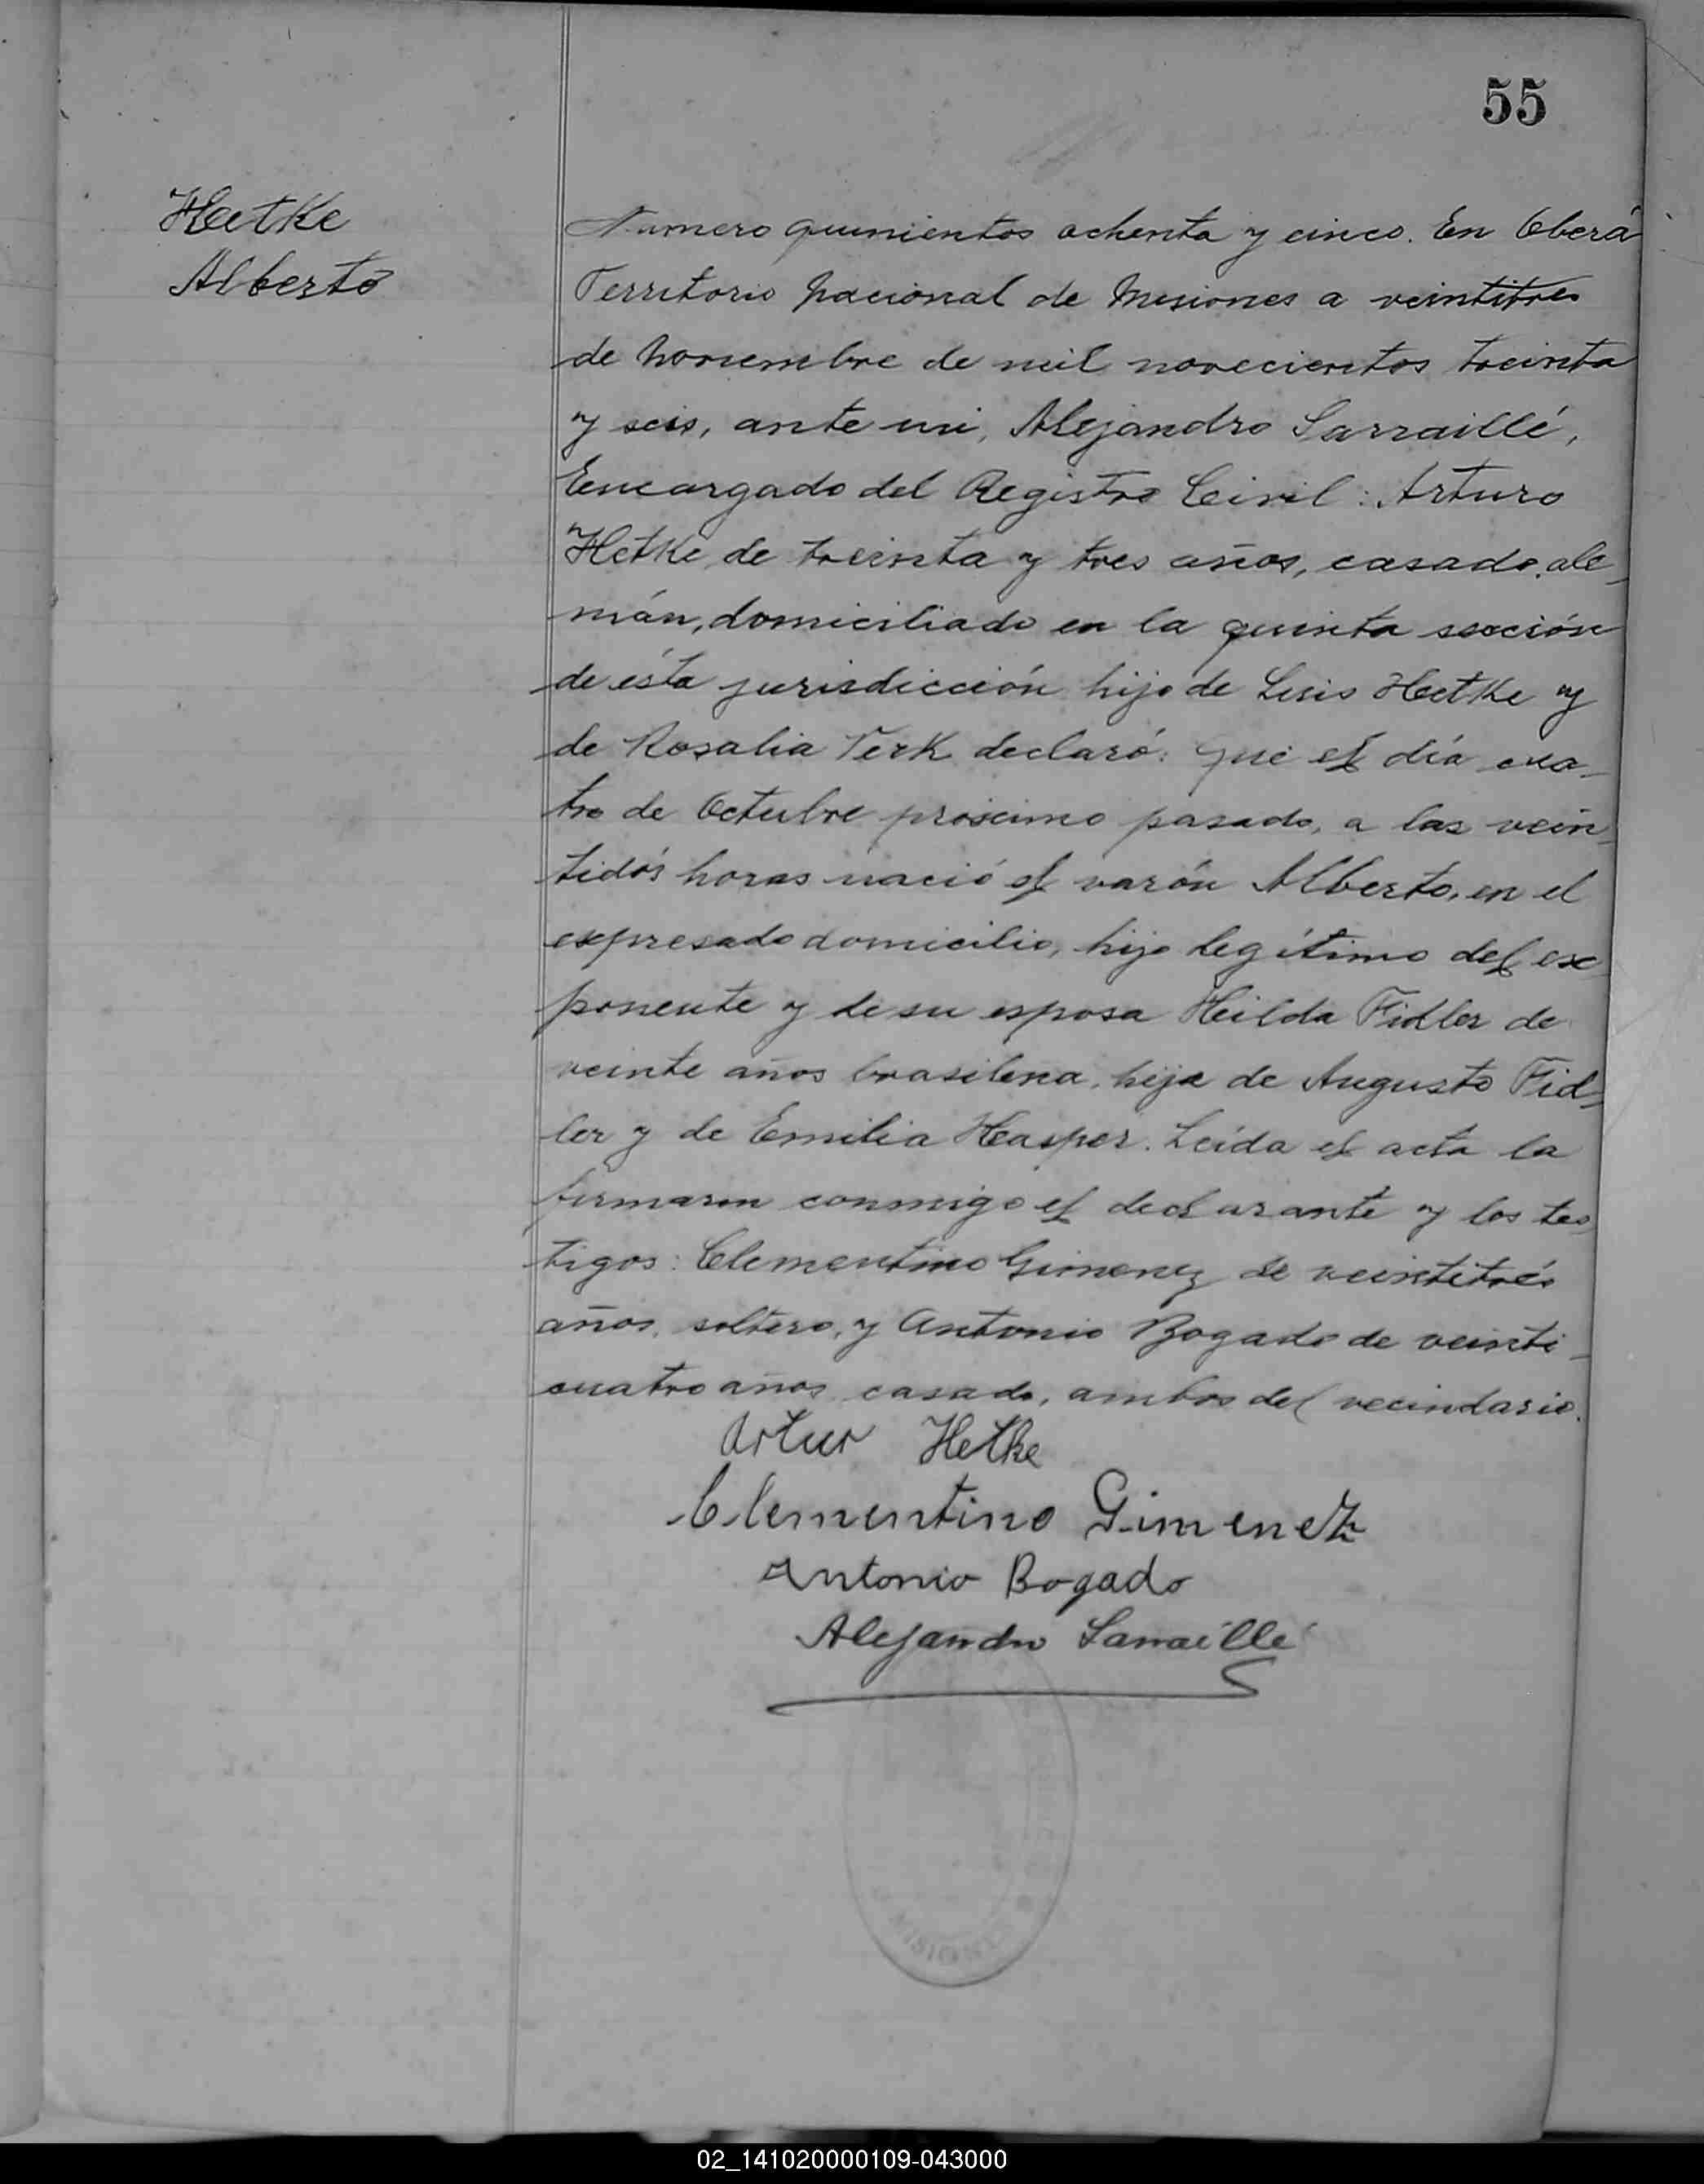 55
Hetke
Alberto
Numero quinientos ochenta y cinco. En Oberá
Territorio Nacional de Misiones a veintitres
de Noviembre de mil novecientos treinta
y seis, ante mi, Alejandro Sarraillé,
Encargado del Registro Civil: Arturo
Hetke, de treinta y tres años, casado, ale-
mán, domiciliado en la quinta sección
de ésta jurisdicción hijo de Luis Hetke y
de Rosalia Terk declaró: Que el día cua-
tro de Octubre próximo pasado, a las vein-
tidós horas nació el varón Alberto, en el
expresado domicilio, hijo legítimo del ex-
ponente y de su esposa Hilda Fidler de
veinte años brasilena, hija de Augusto Fid-
ler y de Emilia Kasper. Leída el acta la
firmaron conmigo el declarante y los tes-
tigos: Clementino Gimenez de veintitrés
años, soltero, y Antonio Bogado de veinti-
cuatro años casado, ambos del vecindario.
Artur Hetke
Clementino Gimenez
Antonio Bogado
Alejandro Sarraillé
MISIONES
02_141020000109-043000